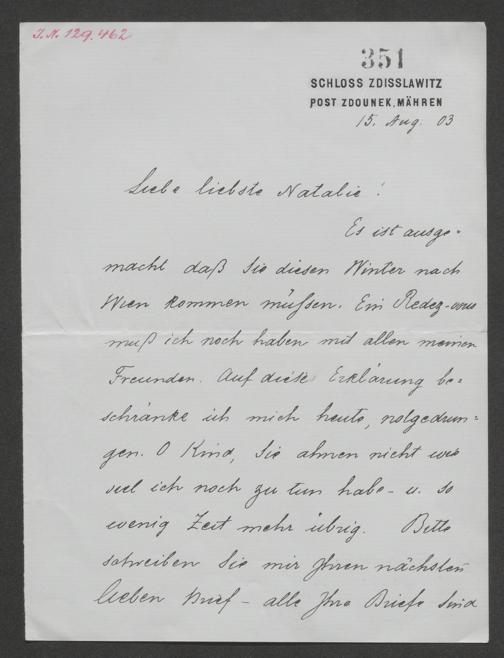 I.N. 129.462
351
SCHLOSS ZDISSLAWITZ
POST ZDOUNEK, MÄHREN
15. Aug. 03
Liebe liebste Natalie!
Es ist ausge-
macht daß Sie diesen Winter nach
Wien kommen müssen. Ein Redez-vous
muß ich noch haben mit allen meinen
Freunden. Auf diese Erklärung be-
schränke ich mich heute, notgedrun-
gen. O Kind, Sie ahnen nicht wie
viel ich noch zu tun habe – u. so
wenig Zeit mehr übrig. Bitte
schreiben Sie mir Ihren nächsten
lieben Brief – alle Ihre Briefe sind